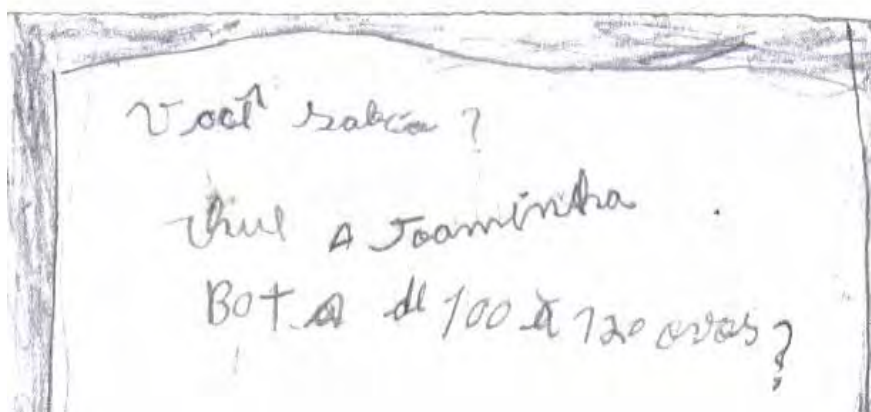 Você sabia?
que A Joaminha
BoTA de 100 A 120 ovos?